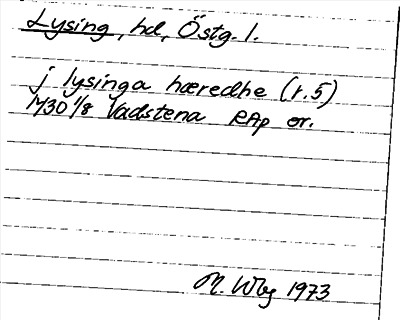 Lysing, hd, Östg. l.
j lysinga hæredhe (r.5)
1430 1/8 Vadstena RAp or.
M. Wbg 1973